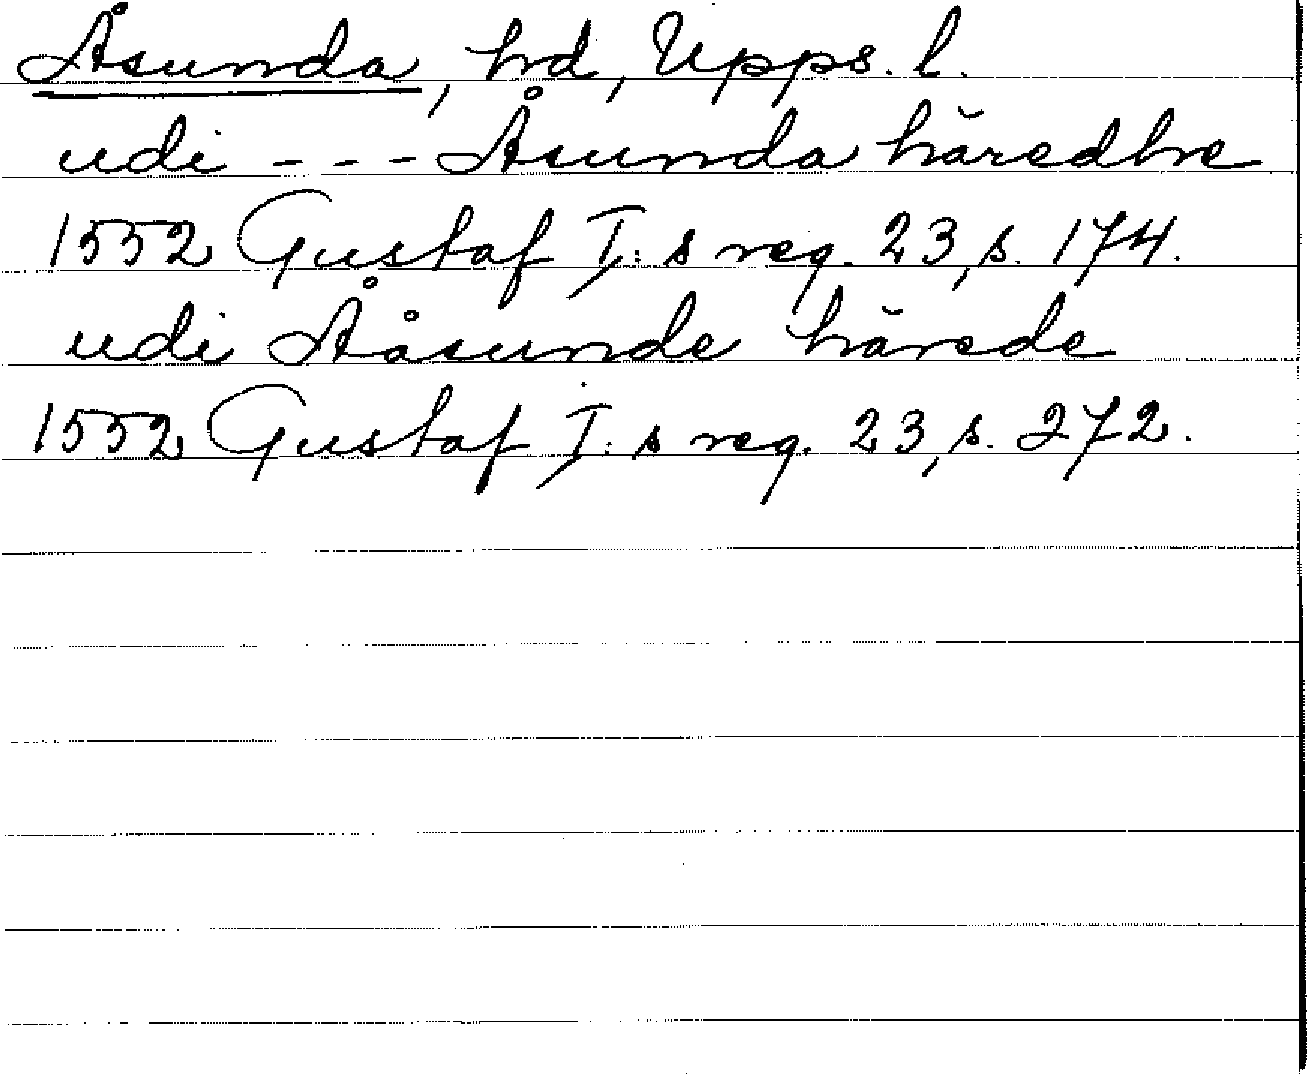 Åsunda, hd, Upps. l.
udi - - - Åsunda häredhe
1552 Gustaf I: s reg. 23, s. 174.
udi Ååsunde härede
1552 Gustaf I: s reg. 23, s. 272.